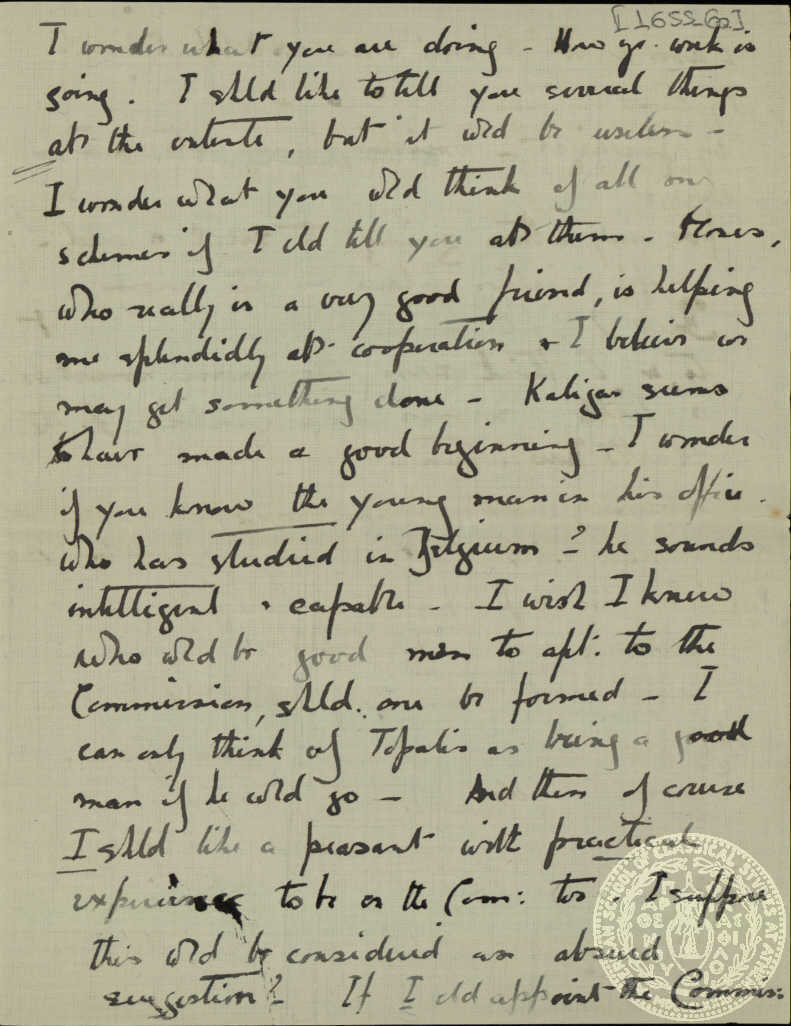 I wonder what you are doing - How yr. work is
going. I shld like to tell you several things
abt the entente, but it wld be useless -
I wonder what you wld think of all our
schemes if I cld tell you abt them -
who really is a very good friend, is helping
me splendidly abt cooperation + I believe we
may get something done - seems
to have made a good beginning - I wonder
if you know the young man in his office
who has studied in Belgium - ? he sounds
intelligent + capable - I wish I knew
who wld be good men to apt: to the
Commission, shld. one be formed - I
can only think of Topalis as being a good
man if he cld go - And then of course
I shld like a peasant with practical
experience to be on the Com: too. I suppose
this wld be considered an absurd
suggestion? If I cld appoint the Commis: